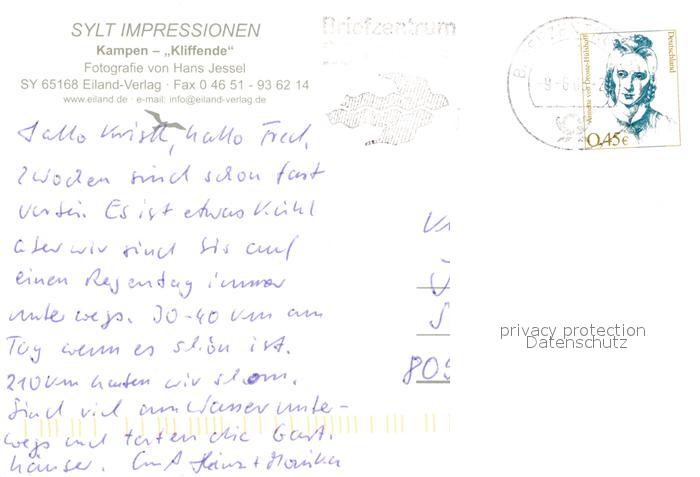 SYLT IMPRESSIONEN
Kampen – „Kliffende“
Fotografie von Hans Jessel
SY 65168 Eiland-Verlag · Fax 0 46 51 - 93 62 14
www.eiland.de · e-mail: info@eiland-verlag.de
Briefzentrum
Annette von Droste-Hülshoff
Deutschland
0,45€
Hallo Kristl, hallo Fred,
2 Wochen sind schon fast
vorbei. Es ist etwas kühl
aber wir sind bis auf
einen Regentag immer
unterwegs. 30-40 km am
Tag wenn es schön ist.
210 km hatten wir schon.
Sind viel am Wasser unter-
wegs und testen die Gast-
häuser. Gruß Heinz + Monika
809
privacy protection
Datenschutz